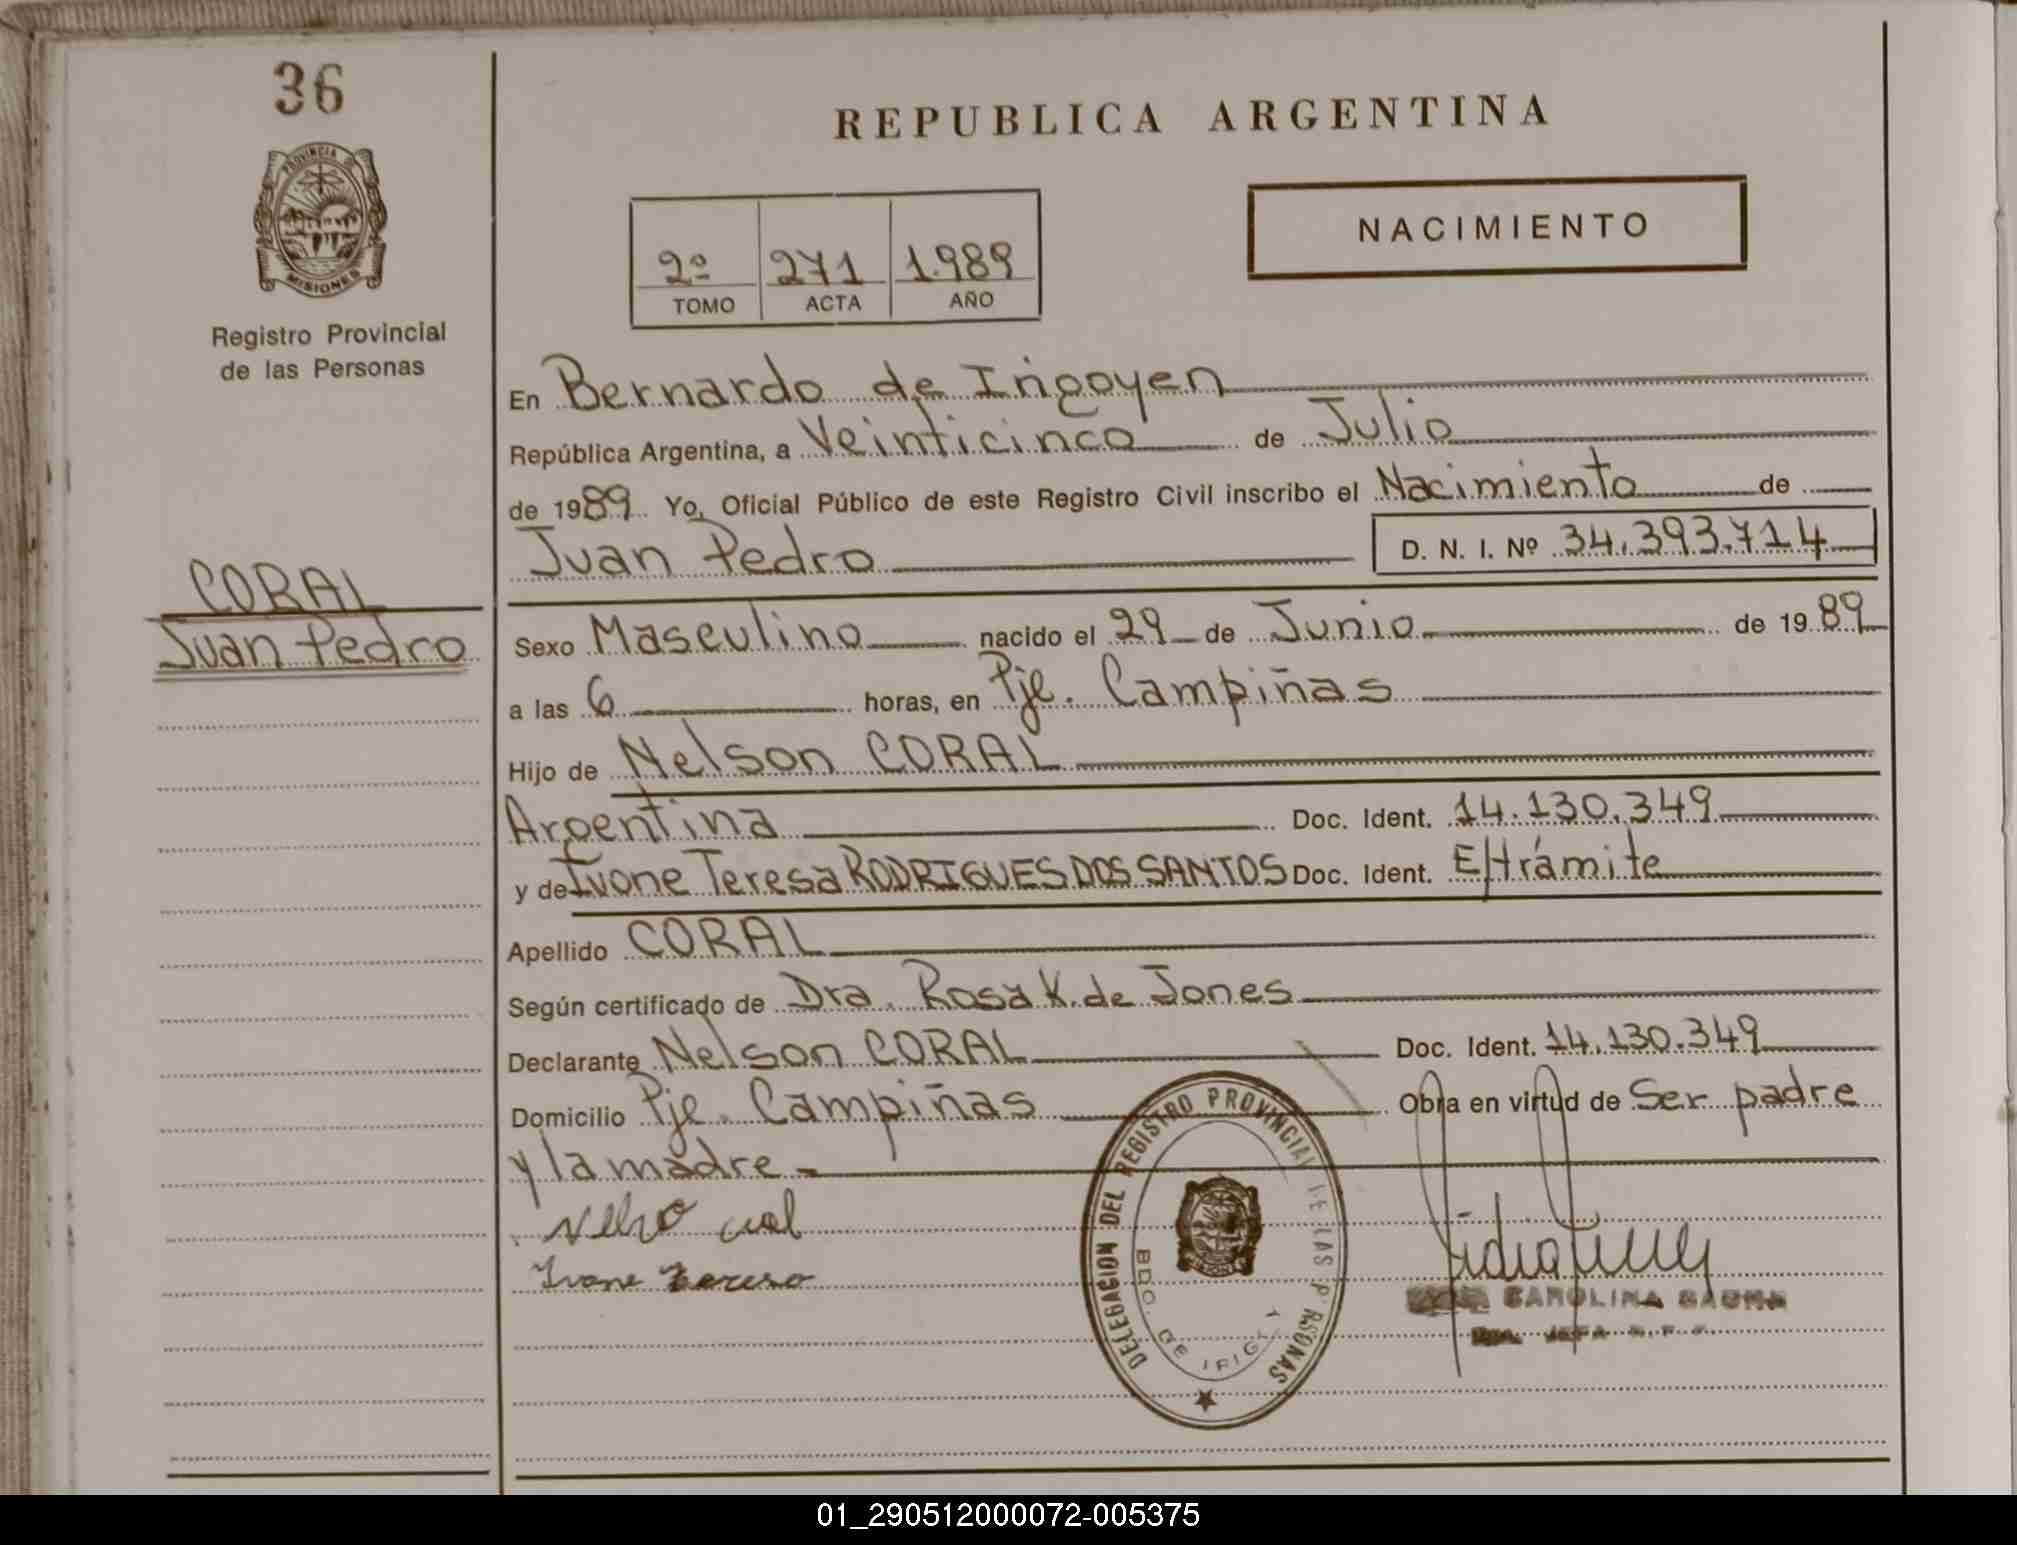 36
PROVINCIA DE
MISIONES
Registro Provincial
de las Personas
CORAL
Juan Pedro
REPUBLICA ARGENTINA
NACIMIENTO
2º 271 1.989
TOMO ACTA AÑO
En Bernardo de Irigoyen
República Argentina, a Veinticinco de Julio
de 1989 Yo, Oficial Público de este Registro Civil inscribo el Nacimiento de
Juan Pedro D. N. I. Nº 34.393.714
Sexo Masculino nacido el 29 de Junio de 1989
a las 6 horas, en Pje. Campiñas
Hijo de Nelson CORAL
Argentina Doc. Ident. 14.130.349
y de Ivone Teresa RODRIGUES DOS SANTOS Doc. Ident. E/trámite
Apellido CORAL
Según certificado de Dra. Rosa K. de Jones
Declarante Nelson CORAL Doc. Ident. 14.130.349
Domicilio Pje. Campiñas Obra en virtud de Ser padre
y la madre
Ivone Tereso
DELEGACION DEL REGISTRO PROVINCIAL DE LAS PERSONAS
BDO. DE IRIG
CAROLINA
JEFA
01_290512000072-005375